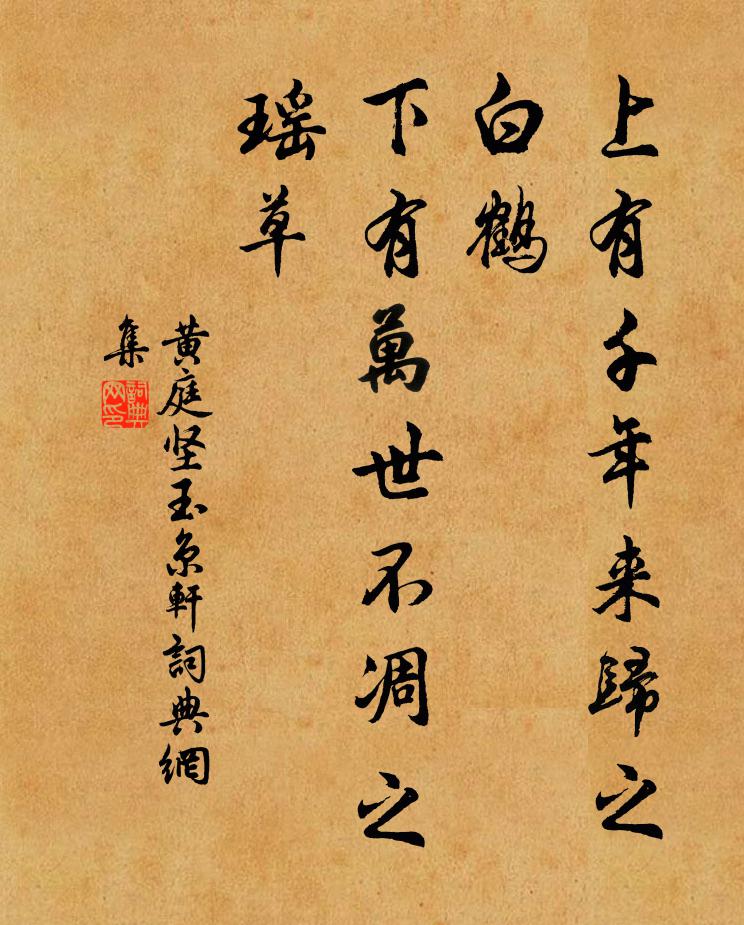 上有千年来歸之
白鶴
下有萬世不凋之
瑶草
黄庭坚玉京軒詞典網
集
詞典网印